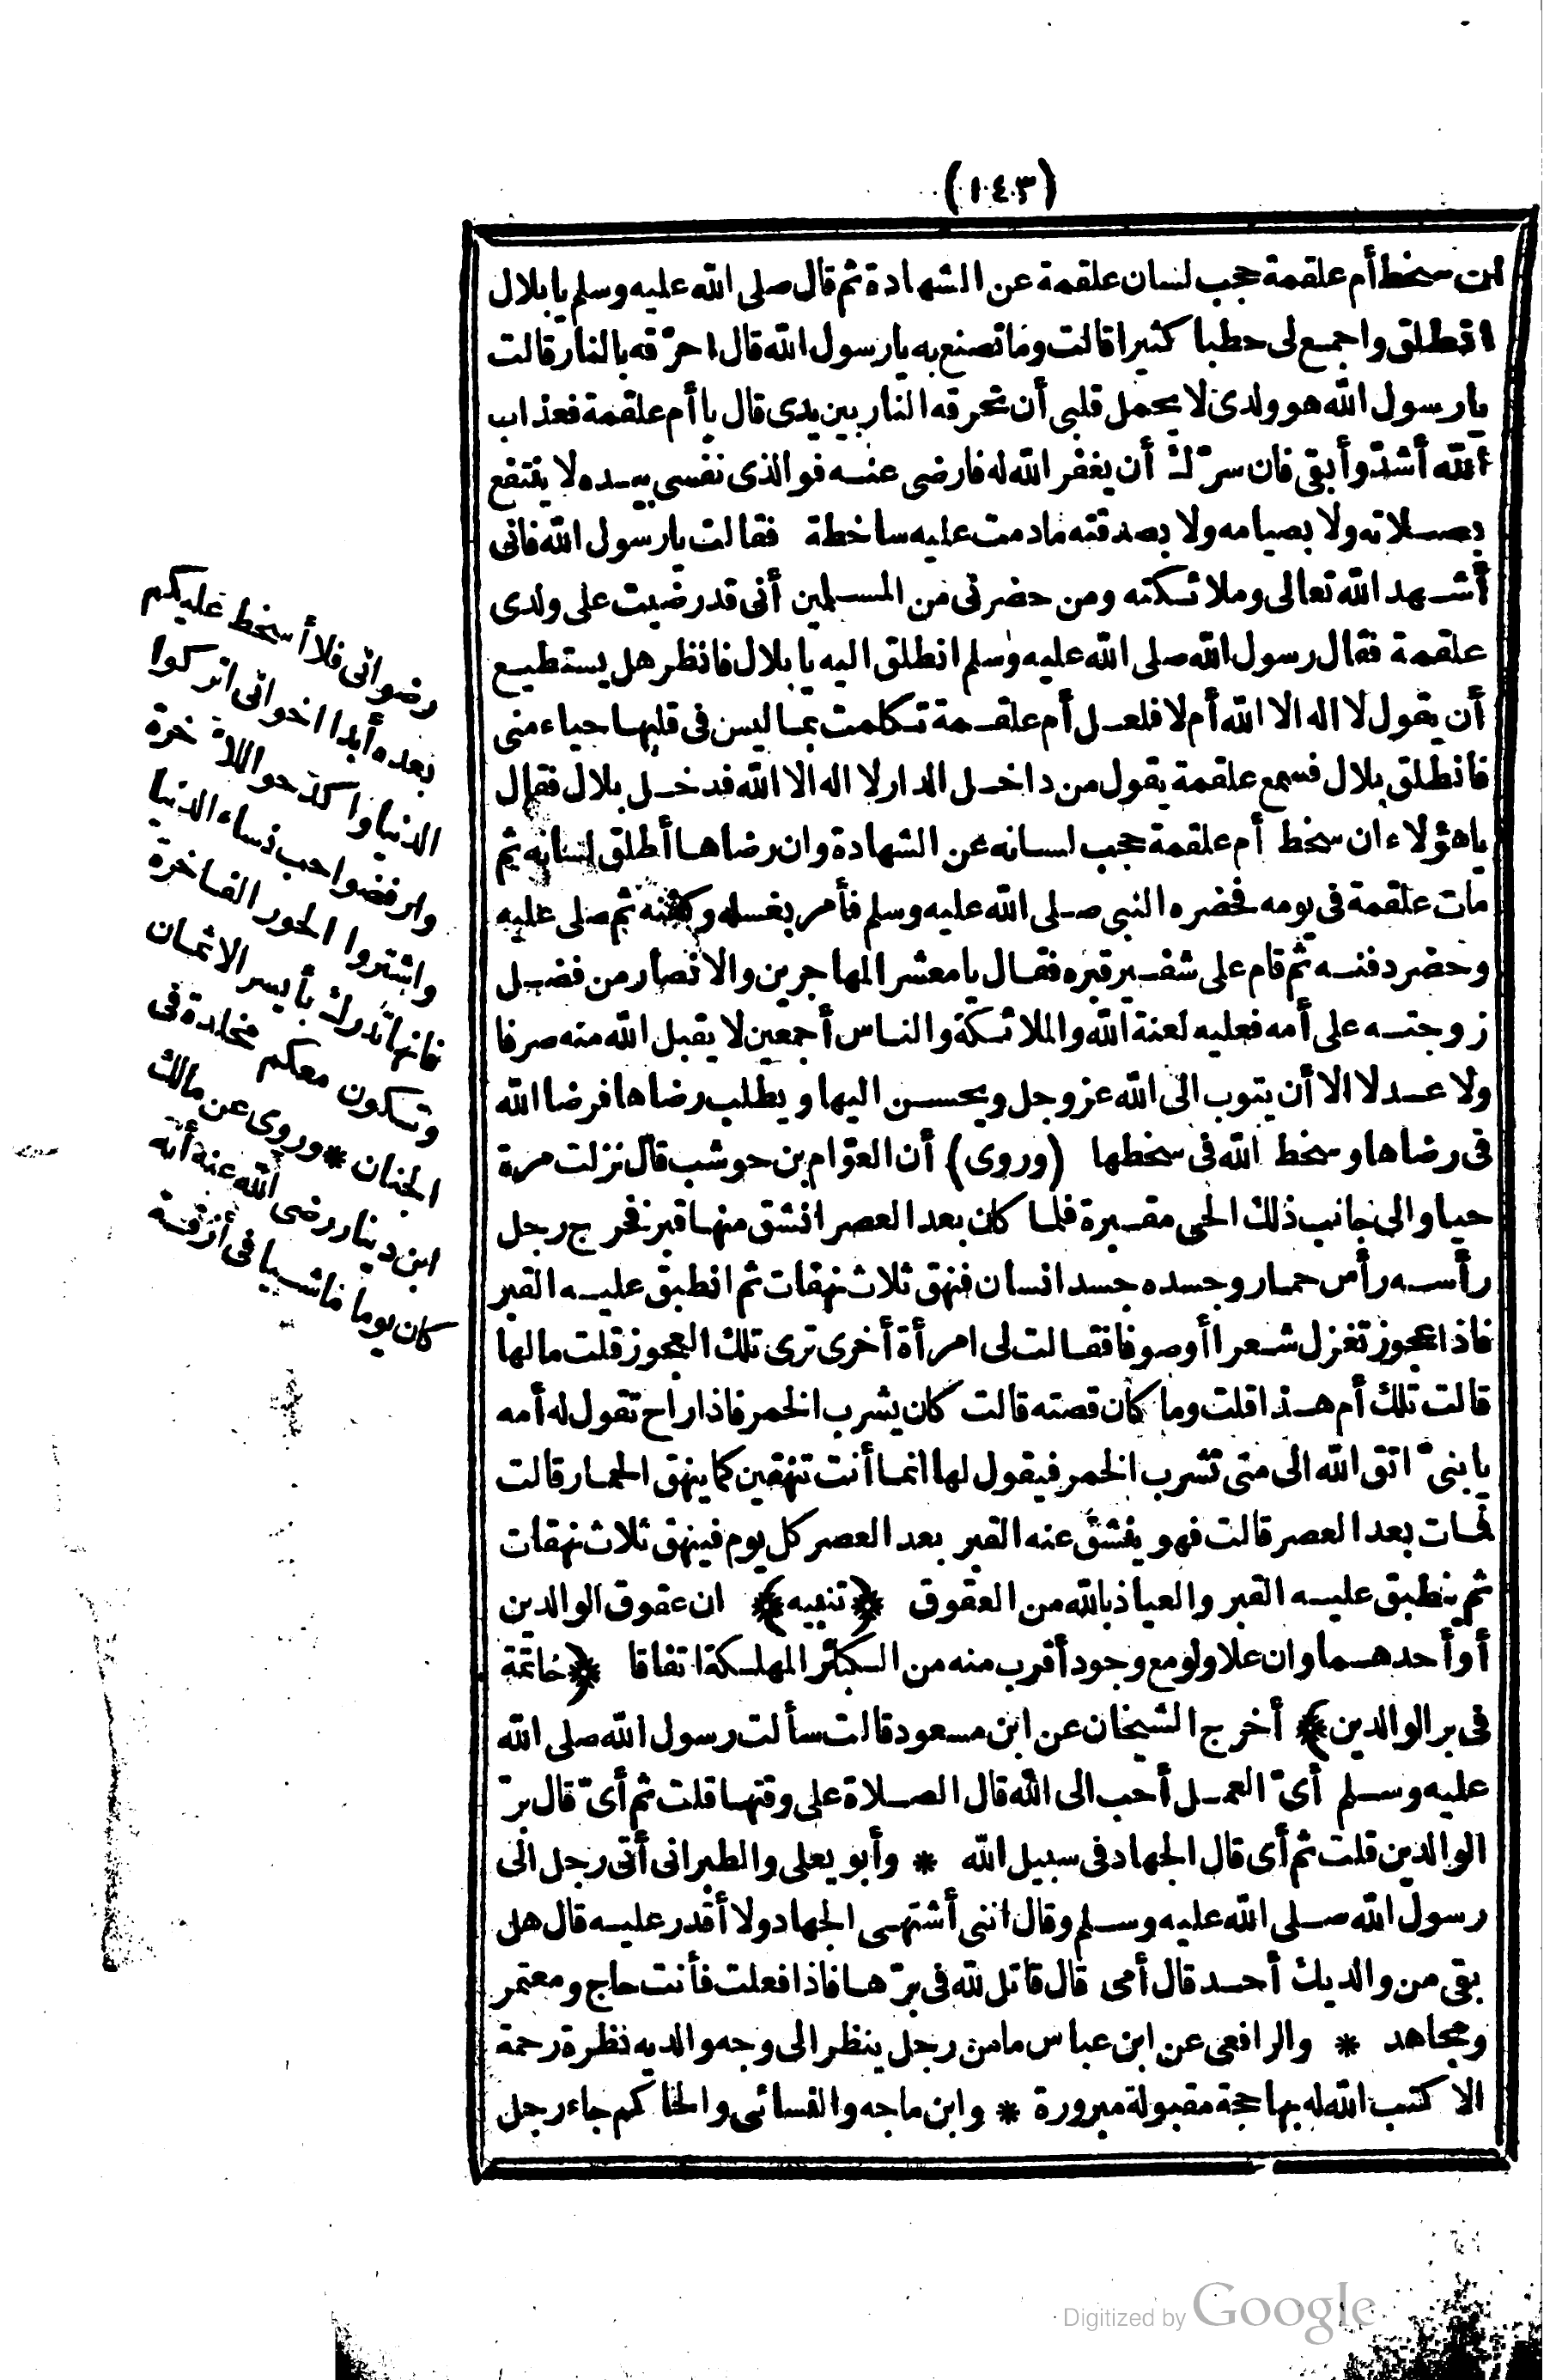 (١٤٣)
ان سخط أم علقمة حجب لسان علقمة عن الشهادة ثم قال صلى الله عليه وسلم يا بلال
انطلق واجمع لى حطبا كثيرا قالت وما تصنع به يا رسول الله قال احرّقه بالنار قالت
يا رسول الله هو ولدى لا يحمل قلبى أن تحرقه النار بين يدى قال يا أم علقمة فعذاب
الله أشدّ وأبقى فان سرّك أن يغفر الله له فارضى عنه فوالذى نفسى بيده لا ينتفع
بصلاته ولا بصيامه ولا بصدقته مادمت عليه ساخطة فقالت يا رسول الله فانى
أشهد الله تعالى وملائكته ومن حضرنى من المسلمين أنى قد رضيت على ولدى
علقمة فقال رسول الله صلى الله عليه وسلم انطلق اليه يا بلال فانظر هل يستطيع
أن يقول لا اله الا الله أم لا فلعل أم علقمة تكلمت بما ليس فى قلبها حياء منى
فانطلق بلال فسمع علقمة يقول من داخل الدار لا اله الا الله فدخل بلال فقال
يا هؤلاء ان سخط أم علقمة حجب لسانه عن الشهادة وان رضاها أطلق لسانه ثم
مات علقمة فى يومه فحضره النبى صلى الله عليه وسلم فأمر بغسله وكفنه ثم صلى عليه
وحضر دفنه ثم قام على شفير قبره فقال يا معشر المهاجرين والانصار من فضل
زوجته على أمه فعليه لعنة الله والملائكة والناس أجمعين لا يقبل الله منه صرفا
ولا عدلا الا أن يتوب الى الله عز وجل ويحسن اليها ويطلب رضاها فرضا الله
فى رضاها وسخط الله فى سخطها (وروى) أن العوّام بن حوشب قال نزلت مرة
حيا والى جانب ذلك الحى مقبرة فلما كان بعد العصر انشق منها قبر فخرج رجل
رأسه رأس حمار وجسده جسد انسان فنهق ثلاث نهقات ثم انطبق عليه القبر
فاذا عجوز تغزل شعرا أو صوفا فقالت لى امرأة أخرى ترى تلك العجوز قلت مالها
قالت تلك أم هذا قلت وما كان قصته قالت كان يشرب الخمر فاذا راح تقول له أمه
يا بنىّ اتق الله الى متى تشرب الخمر فيقول لها انما أنت تنهقين كما ينهق الحمار قالت
فمات بعد العصر قالت فهو ينشق عنه القبر بعد العصر كل يوم فينهق ثلاث نهقات
ثم ينطبق عليه القبر والعياذ بالله من العقوق ﴿تنبيه﴾ ان عقوق الوالدين
أو أحدهما وان علا ولو مع وجود أقرب منه من الكبائر المهلكة اتفاقا ﴿خاتمة
فى بر الوالدين﴾ أخرج الشيخان عن ابن مسعود قالت سألت رسول الله صلى الله
عليه وسلم أىّ العمل أحب الى الله قال الصلاة على وقتها قلت ثم أىّ قال برّ
الوالدين قلت ثم أى قال الجهاد فى سبيل الله * وأبو يعلى والطبرانى أتى رجل الى
رسول الله صلى الله عليه وسلم وقال اننى أشتهى الجهاد ولا أقدر عليه قال هل
بقى من والديك أحد قال أمى قال قاتل لله فى برّها فاذا فعلت فأنت حاج ومعتمر
ومجاهد * والرافعى عن ابن عباس ما من رجل ينظر الى وجه والديه نظرة رحمة
الا كتب الله له بها حجة مقبولة مبرورة * وابن ماجه والنسائى والحاكم جاء رجل
رضوانى فلا أسخط عليكم
بعده أبدا اخوانى اتركوا
الدنيا واكدحوا للآخرة
وارفضوا حب نساء الدنيا
واشتروا الحور الفاخرة
فانها تدرك بأيسر الاثمان
وتكون معكم مخلدة فى
الجنان * وروى عن مالك
ابن دينار رضى الله عنه أنه
كان يوما ماشيا فى أزقة
Digitized by Google